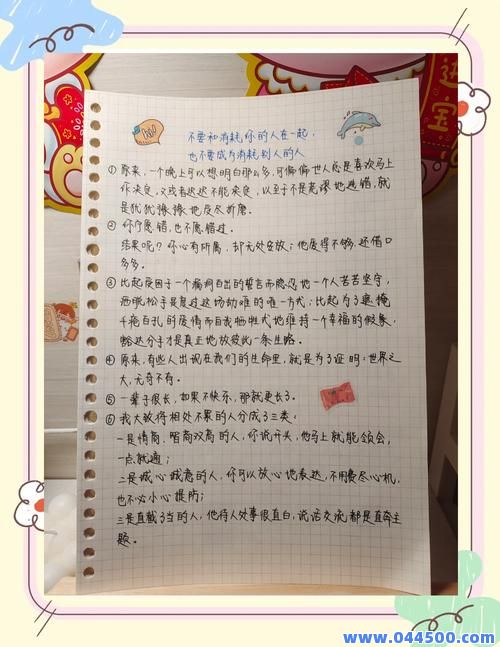 hi!
不要和消耗你的人在一起,
也不要成为消耗别人的人
① 原来,一个晚上可以想明白那么多,可偏偏世人总是喜欢马上
作决定,又或者迟迟不能决定,以至于不是荒谬地选错,就
是犹犹豫豫地度尽折磨。
② 你宁愿错,也不愿错过。
结果呢?你心有所属,却无处安放;他觉得不够,还借口
多多。
③ 比起反困于一个痛彻自出的誓言而隐忍地一个人苦苦坚守,
洒脱松手是度过这场劫难的唯一方式;比起为了遮掩
千疮百孔的爱情而自我牺牲式地维持一个幸福的假象,
豁达分手才是真正地放彼此一条生路。
④ 原来,有些人出现在我们的生命里,就是为了证明:世界之
大,无奇不有。
⑤ 一辈子很长,如果不快乐,那就更长了。
⑥ 我大致将相处不累的人分成了三类:
一是情商、智商双高的人,你说开头,他马上就能领会,
一点就通;
二是诚心诚意的人,你可以放心地表达,不用费尽心机,
也不必小心提防;
三是直截了当的人,他待人处事很直白,说话交流都是直奔主
题。
进
宝
www.044500.com